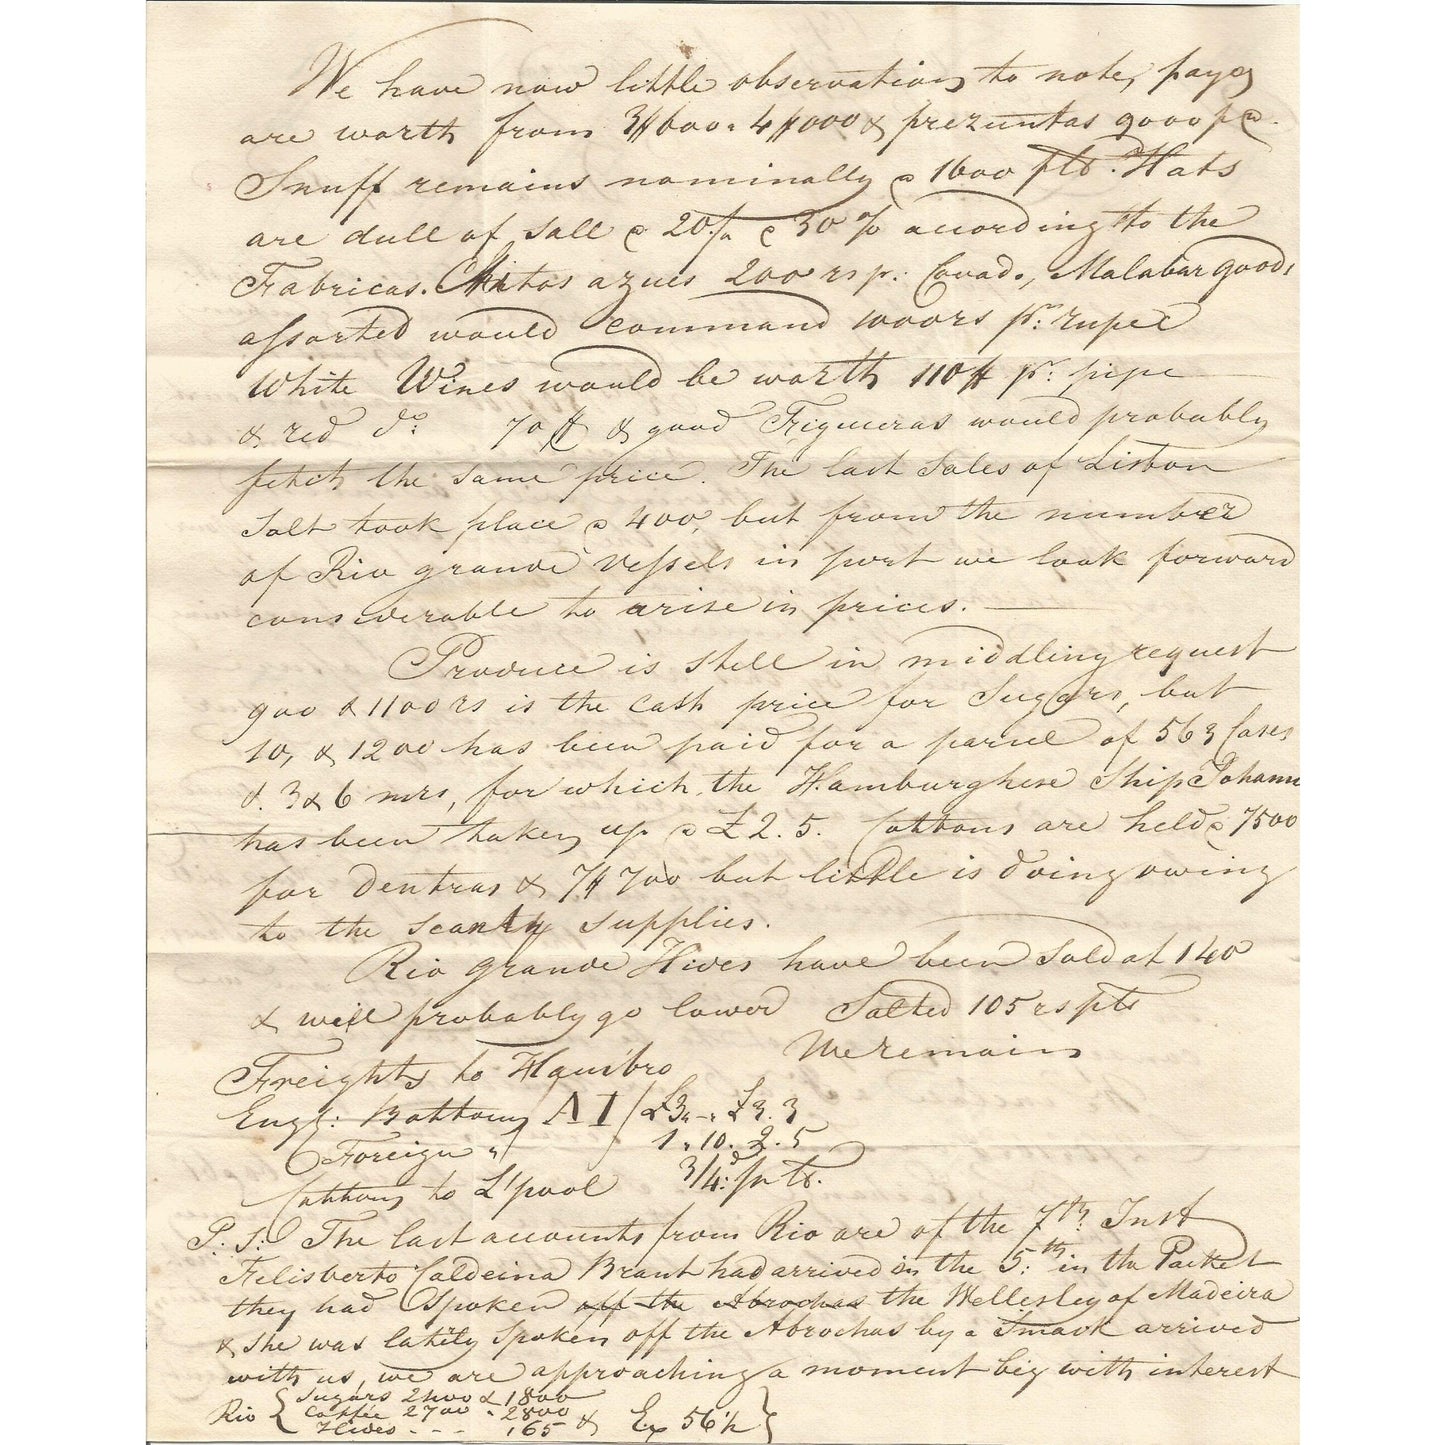 We have now little observations to note, payos
are worth from 3#600 a 4#000 & prezuntas 9000 p @.
Snuff remains nominally @ 1600 pls. Hats
are dull of Sall @ 20/a @ 30 % according to the
Fabricas. Chitas azues 200 rs pr: Covado, Malabar goods
assorted would command 1000rs pr: rupee
White Wines would be worth 110# pr: pipe
& red do: 70# & good Figueras would probably
fetch the same price. The last Sales of Lisbon
Salt took place @ 400, but from the number
of Rio grande Vessels in port we look forward
considerable to arise in prices.
Produce is still in middling request
900 & 1100 rs is the Cash price for Sugars, but
10, & 1200 has been paid for a parcel of 563 Cases
d. 3 & 6 mrs, for which, the Hamburghese Ship Johann
has been taken up @ £2.5. Cottons are held @ 7500
for dentras & 7#700 but little is doing owing
to the scanty supplies.
Rio grande Hides have been Sold at 140
& will probably go lower Salted 105 rs pts
We remain
Freights to Hambro
Engl: Bottoms A I £3,-,, £3.3
Foreign " 1.10. 2.5
Cottons to L'pool 3/4d: pr ℔.
P: S: The last accounts from Rio are of the 7th: Inst
Felisberto Caldeira Brant had arrived on the 5:th in the Packet
they had Spoken off the Abrochas the Wellesley of Madeira
& she was lately Spoken off the Abrochas by a Smack arrived
with us, we are approaching a moment big with interest
Rio { Sugars 2400 & 1800
Coffee 2700 " 2800
Hides - - - ,165 & Ex 56½ }